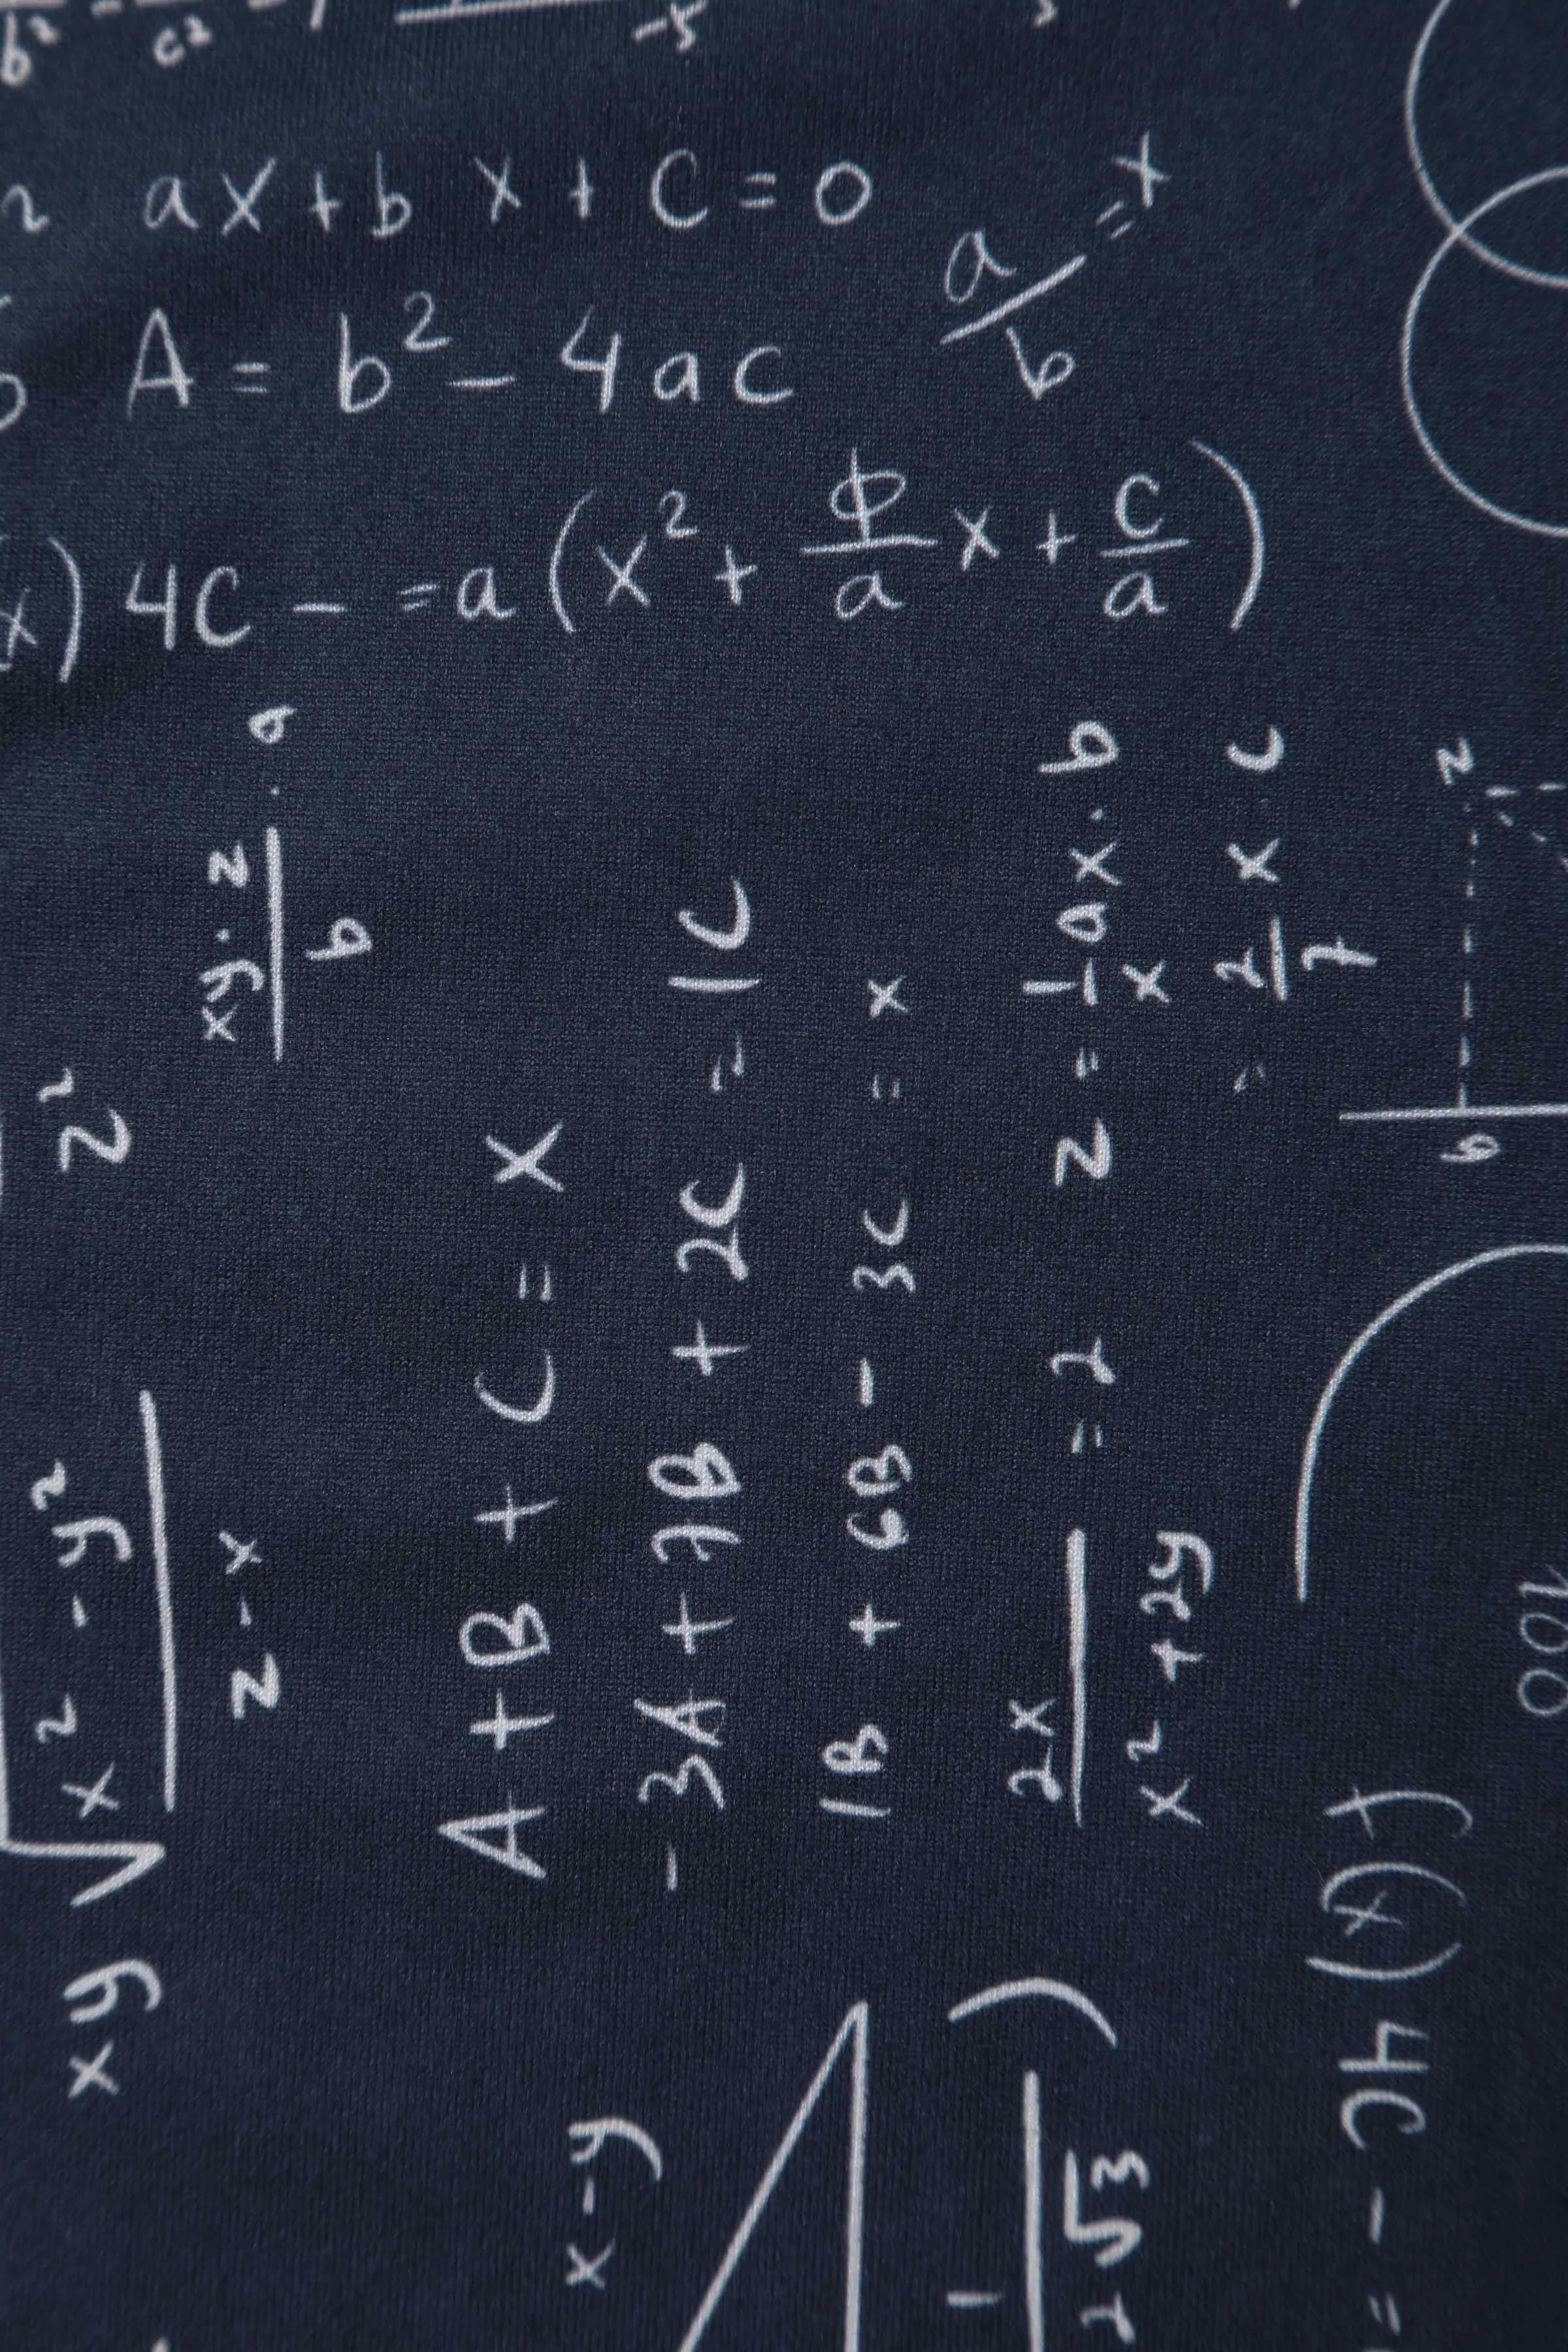 b² = c² -5
ax+bx+C=0
a/b = x
A = b² - 4ac
x) 4C - = a(x² + ϕ/a x + c/a)
xy√(x² - y²)/(z - x) z²
xy·z/b · a
A + B + C = X
-3A + 7B + 2C = 1C
1B + 6B - 3C = x
2x/(x² + 2y) = 2
z = 1/x ax·b
= 2/7 x·c
z
b
100
f(x) 4C - =
x-y
1/2√3 )